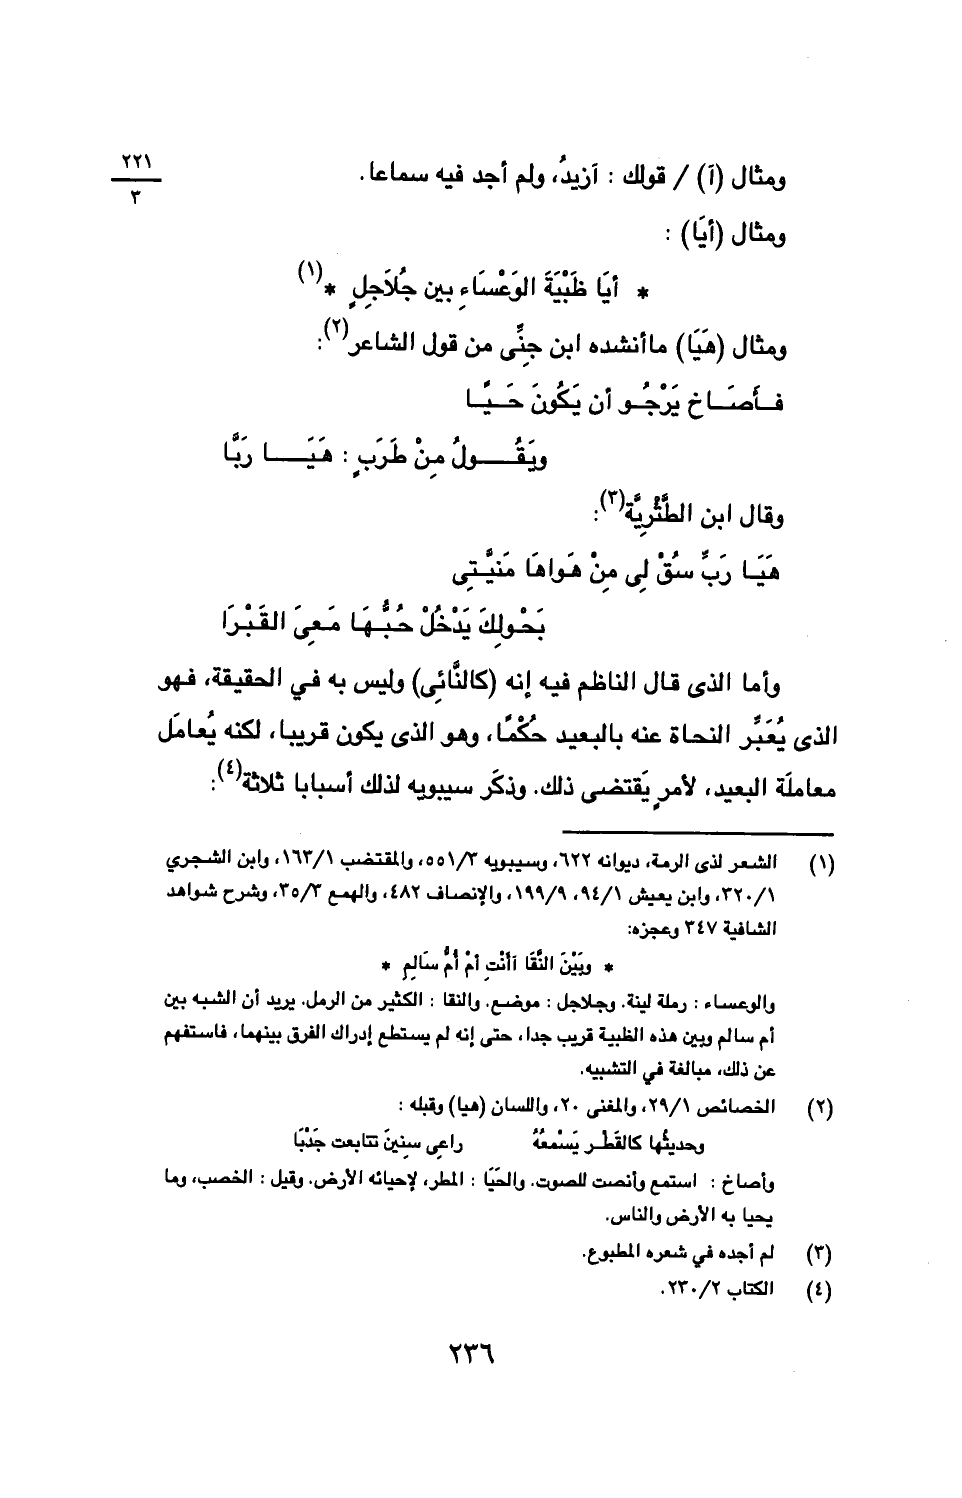 ٢٢١
٣
ومثال (آ) / قولك : آزيدُ، ولم أجد فيه سماعا.
ومثال (أيَا) :
* أيَا ظَبْيَةَ الوَعْسَاءِ بين جُلَاجِلٍ *(١)
ومثال (هَيَا) ماأنشده ابن جنِّى من قول الشاعر(٢):
فـأَصَـاخ يَرْجُـو أن يَكُونَ حَـيًّـا
ويَقُـــولُ مِنْ طَرَبٍ : هَيَـــا رَبَّا
وقال ابن الطَّثْرِيَّة(٣):
هَيَـا رَبِّ سُقْ لِى مِنْ هَواهَا مَنيَّـتِى
بَحْولِكَ يَدْخُلْ حُبُّـهَا مَـعِىَ القَبْـرَا
وأما الذى قال الناظم فيه إنه (كالنَّائِي) وليس به في الحقيقة، فهو
الذى يُعَبِّر النحاة عنه بالبعيد حكْمًا، وهو الذى يكون قريبا، لكنه يُعامَل
معاملَة البعيد، لأمرٍ يَقتضى ذلك. وذكَر سيبويه لذلك أسبابا ثلاثة(٤):
(١) الشعر لذى الرمة، ديوانه ٦٢٢، وسيبويه ٥٥١/٣، والمقتضب ١٦٣/١، وابن الشجري
٣٢٠/١، وابن يعيش ٩٤/١، ١٩٩/٩، والإنصاف ٤٨٢، والهمع ٣٥/٣، وشرح شواهد
الشافية ٣٤٧ وعجزه:
* وبَيْنَ النَّقَا اَأنْتِ أمْ أُمُّ سَالِمِ *
والوعساء : رملة لينة. وجلاجل : موضع. والنقا : الكثير من الرمل. يريد أن الشبه بين
أم سالم وبين هذه الظبية قريب جدا، حتى إنه لم يستطع إدراك الفرق بينهما، فاستفهم
عن ذلك، مبالغة في التشبيه.
(٢) الخصائص ٢٩/١، والمغنى ٢٠، واللسان (هيا) وقبله :
وحديثُها كالقَطْـر يَسْمعُهُ راعِى سنينَ تتابعت جَدْبَا
وأصاخ : استمع وأنصت للصوت. والحَيَا : المطر، لإحيائه الأرض. وقيل : الخصب، وما
يحيا به الأرض والناس.
(٣) لم أجده في شعره المطبوع.
(٤) الكتاب ٢٣٠/٢.
٢٣٦